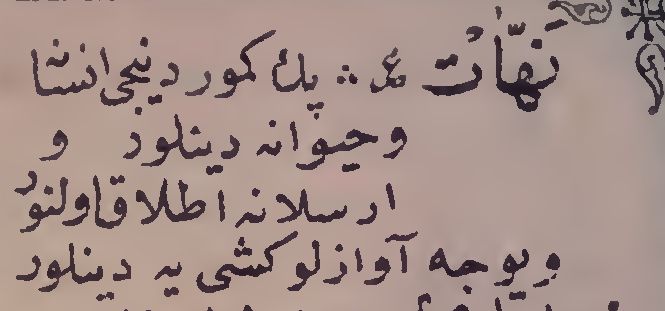 نَهَّاتْ عر پك كمور دنیجی انسانا
و حیوانه دینلور و
ارسلانه اطلاق اولنور
و یوجه آوازلو كشی یه دینلور